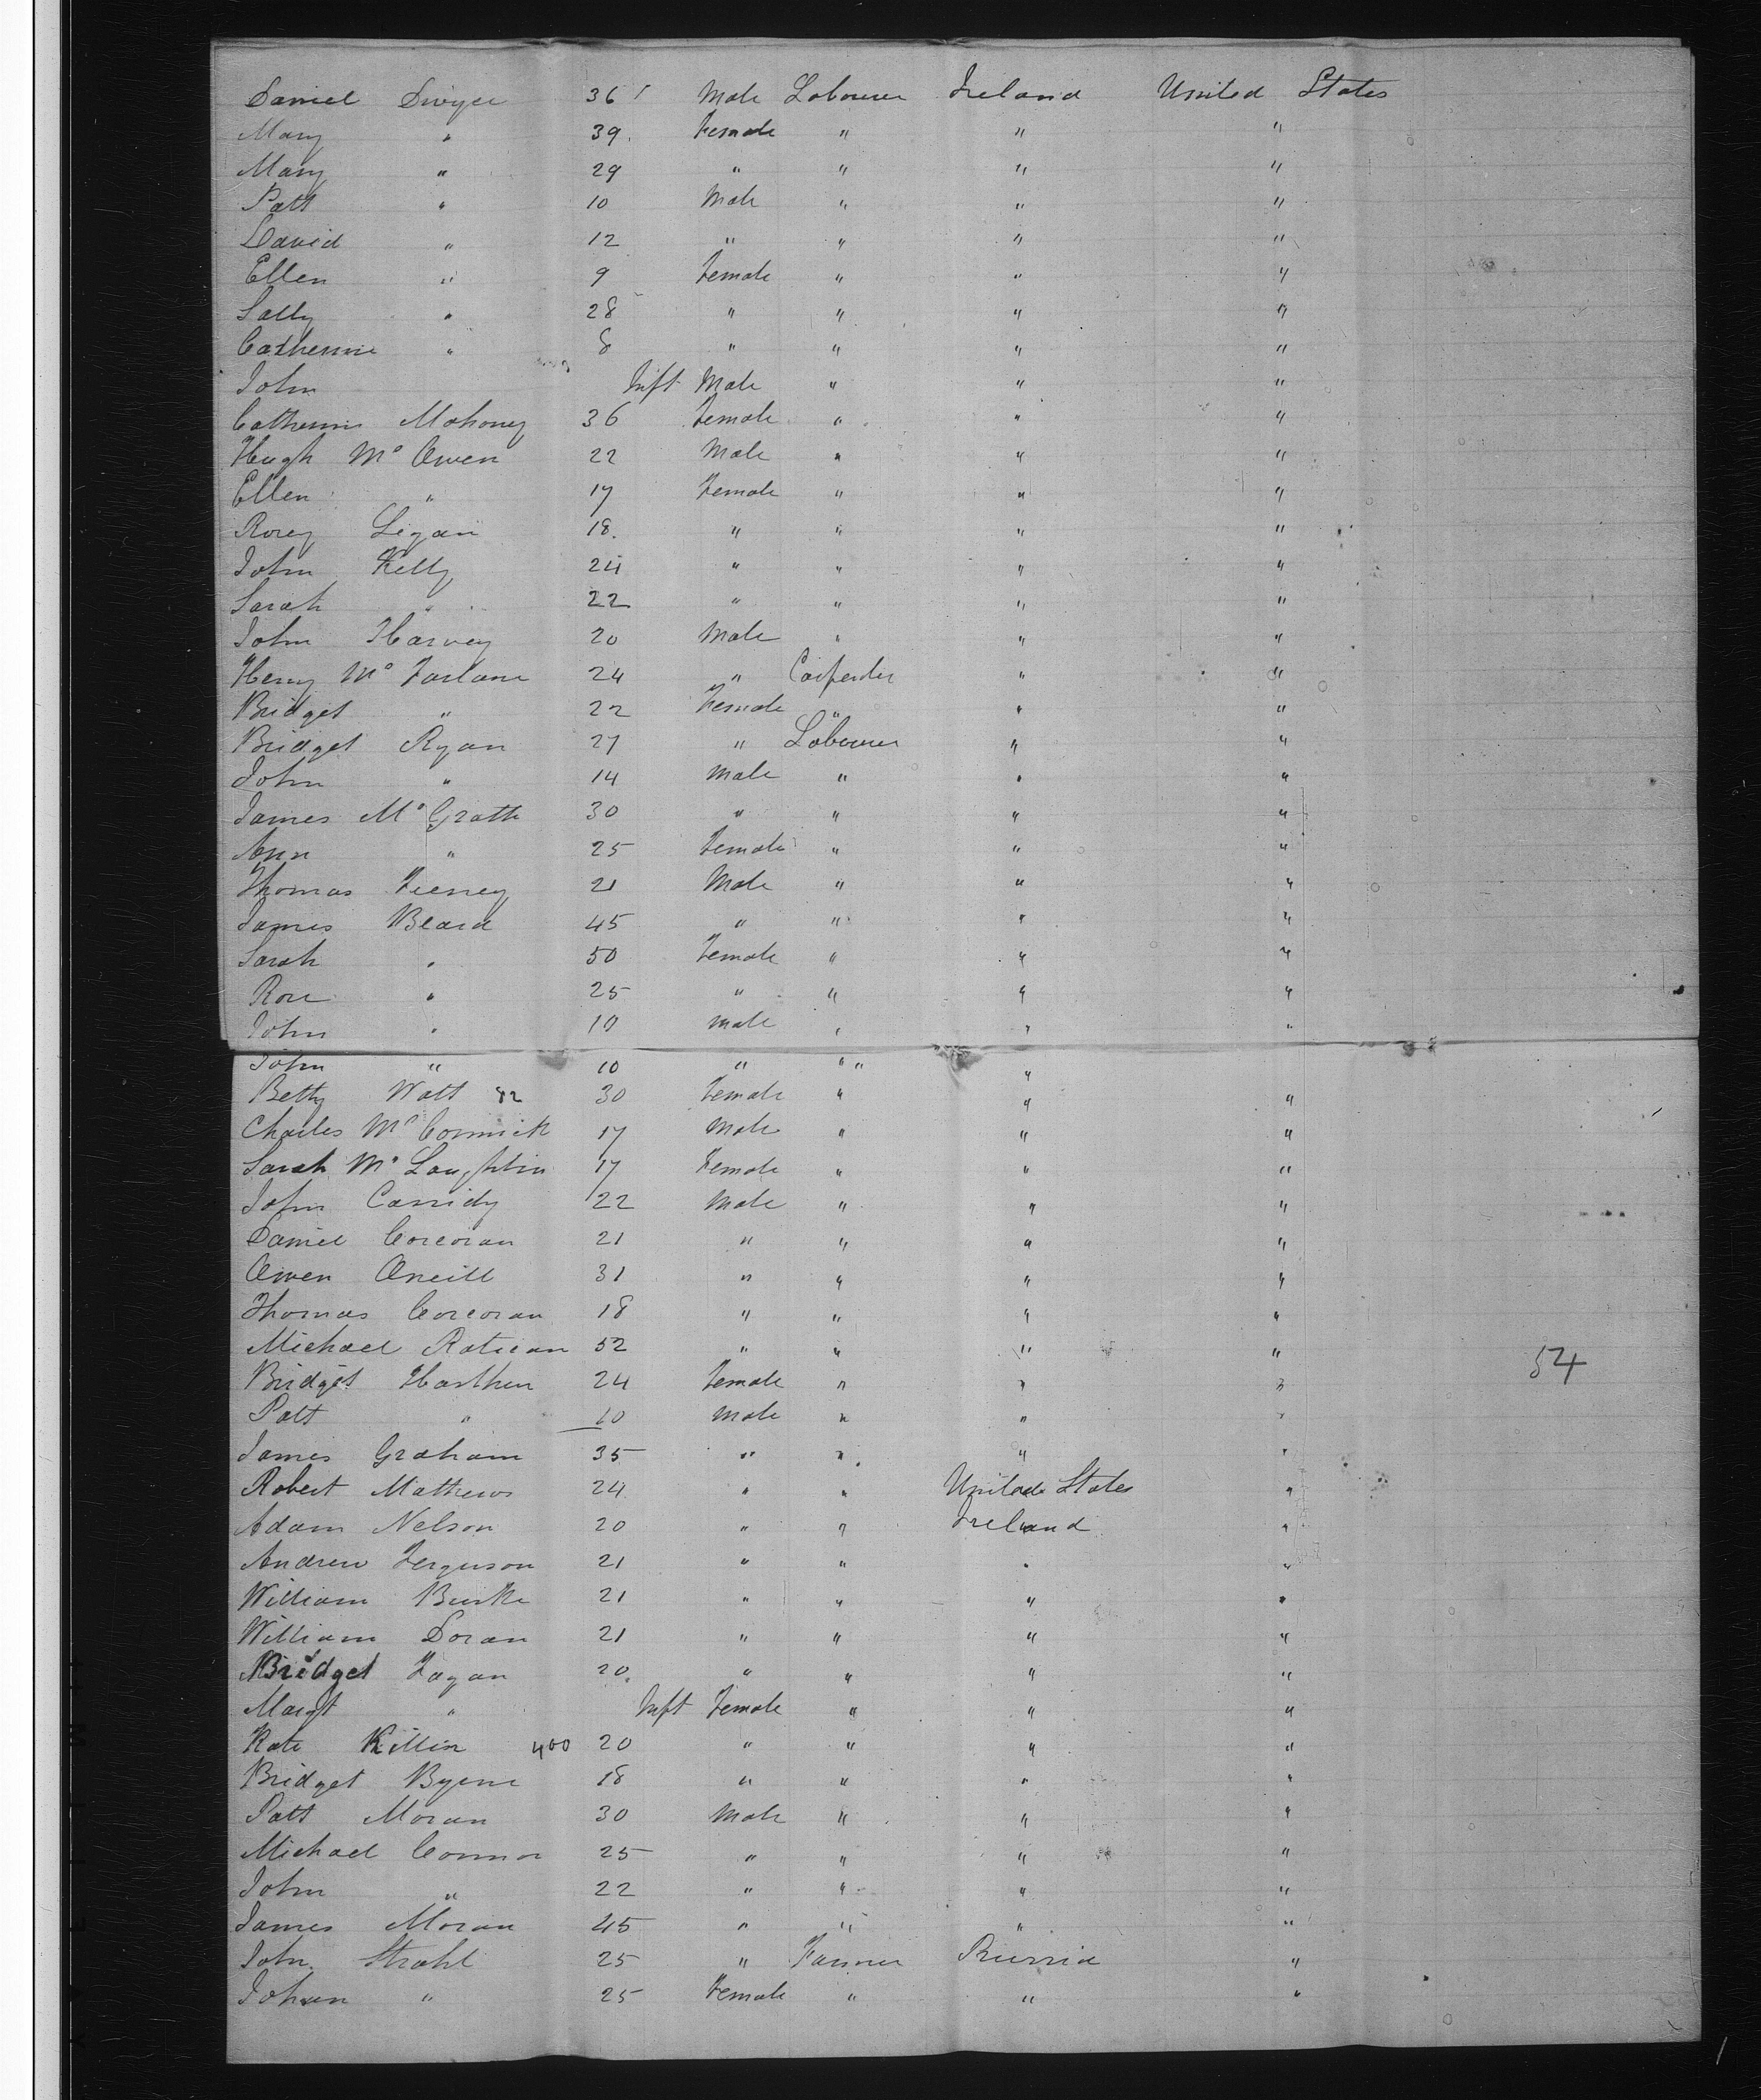 Daniel Dwyer 36 Male Labourer Ireland United States
Mary " 39 Female " " "
Mary " 29 " " " "
Patt " 10 Male " " "
David " 12 " " " "
Ellen " 9 Female " " "
Sally " 28 " " " "
Catherine " 8 " " " "
John Inft Male " " "
Catherine Mahoney 36 Female " " "
Hugh Mc Owen 22 Male " " "
Ellen " 17 Female " " "
Rorey Ligan 18 " " " "
John Kelly 24 " " " "
Sarah " 22 " " " "
John Harvey 20 Male " " "
Henry Mc Farlane 24 " Carpenter " "
Bridget " 22 Female " " "
Bridget Ryan 27 " Labourer " "
John " 14 Male " " "
James Mc Grath 30 " " " "
Ann " 25 Female " " "
Thomas Feeney 21 Male " " "
James Beard 45 " " " "
Sarah " 50 Female " " "
Rose " 25 " " " "
John " 10 Male " " "
John " 10 " " " "
Betty Watt 30 Female " " "
Charles Mc Cormick 17 Male " " "
Sarah Mc Laughlin 17 Female " " "
John Cassidy 22 Male " " "
Daniel Corcoran 21 " " " "
Owen Oneill 31 " " " "
Thomas Corcoran 18 " " " "
Michael Ratican 52 " " " "
54
Bridget Harthen 24 Female " " "
Patt " 10 Male " " "
James Graham 35 " " " "
Robert Mathews 24 " " United States "
Adam Nelson 20 " " Ireland "
Andrew Ferguson 21 " " " "
William Burke 21 " " " "
William Doran 21 " " " "
Bridget Fagan 20 " " " "
Margt " Inft Female " " "
Kate Killin 400 20 " " " "
Bridget Byrne 18 " " " "
Patt Moran 30 Male " " "
Michael Connor 25 " " " "
John " 22 " " " "
James Moran 45 " " " "
John Strahl 25 " Farmer Russia "
Johan " 25 Female " " "